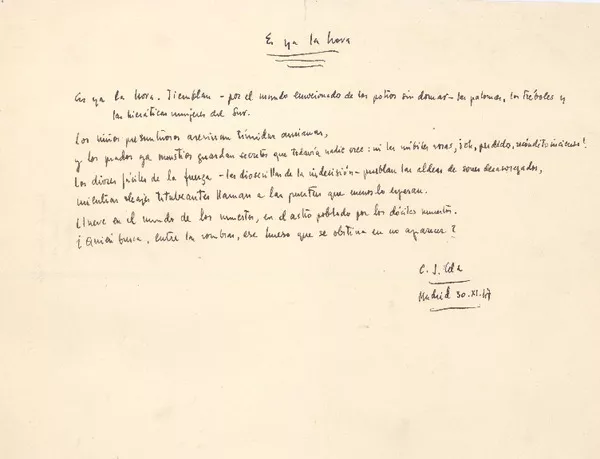 Es ya la hora
Es ya la hora. Tiemblan – por el mundo emocionado de los potros sin domar – las palomas, los tréboles y
las hieráticas mujeres del Sur.
Los niños presuntuosos asesinan tímidas ancianas,
y los prados ya mustios guardan secretos que todavía nadie cree: ni las núbiles rosas, ¡oh, perdido, recóndito incienso!
Los dioses fáciles de la fuerza – las diosecillas de la indecisión – pueblan las aldeas de sones desasosegados,
mientras viejas titubeantes llaman a las puertas que menos lo esperan.
Llueve en el mundo de los muertos, en el astro poblado por los dóciles muertos.
¿Quién busca, entre las sombras, ese hueso que se obstina en no aparecer?
C. J. Cela
Madrid 30.XI.47